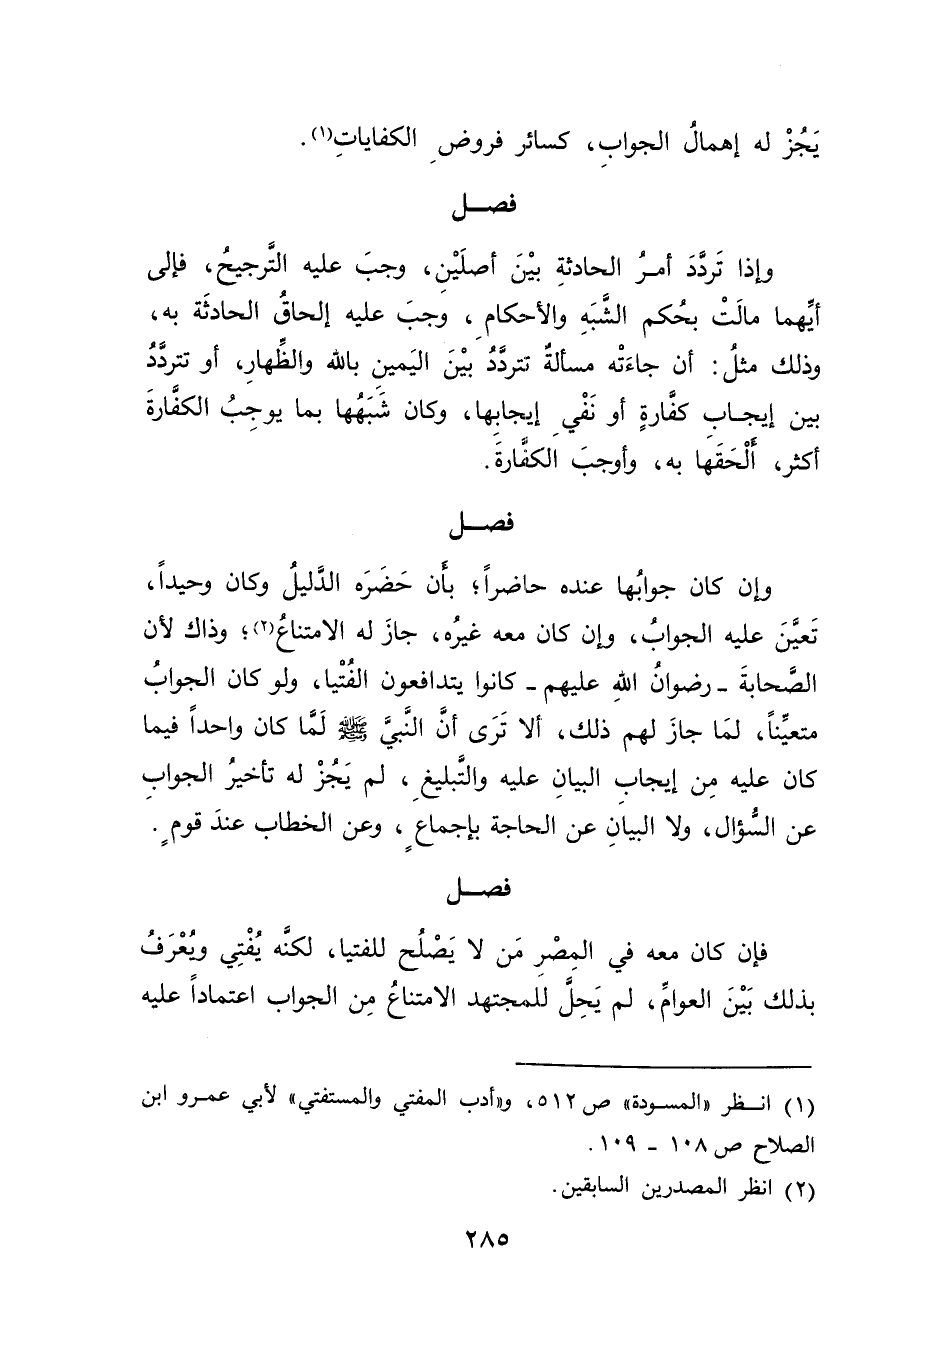 يَجُزْ له إهمالُ الجوابِ، كسائر فروضِ الكفاياتِ(١).
فصــل
وإذا تَردَّدَ أمـرُ الحادثةِ بيْنَ أصلَيْنِ، وجبَ عليه التَّرجيحُ، فإلى
أيِّهما مالَتْ بحُكم الشَّبَهِ والأحكامِ، وجبَ عليه إلحاقُ الحادثَة به،
وذلك مثلُ: أن جاءَتْه مسألةٌ تتردَّدُ بيْنَ اليَمينِ بالله والظِّهارِ، أو تتردَّدُ
بين إيجـابِ كفَّارةٍ أو نَفْيِ إيجابِها، وكان شَبَهُها بما يوجِبُ الكفَّارةَ
أكثر، أَلْحَقَها به، وأوجبَ الكفَّارةَ.
فصــل
وإن كان جوابُها عنده حاضراً؛ بأَن حَضَرَه الدَّليلُ وكان وحيداً،
تَعيَّنَ عليه الجوابُ، وإن كان معه غيرُه، جازَ له الامتناعُ(٢)؛ وذاك لأن
الصَّحابةَ ـ رضوانُ اللهِ عليهم ـ كانوا يتدافعون الفُتْيا، ولو كان الجوابُ
متعيِّناً، لمَا جازَ لهم ذلك، ألا تَرَى أنَّ النَّبيَّ ﷺ لَمَّا كان واحداً فيما
كان عليه مِن إيجابِ البيانِ عليه والتَّبليغِ، لم يَجُزْ له تأخيرُ الجوابِ
عن السُّؤال، ولا البيانِ عن الحاجة بإجماعٍ، وعن الخطاب عندَ قومٍ.
فصــل
فإن كان معه في المِصْرِ مَن لا يَصْلُح للفتيا، لكنَّه يُفْتِي ويُعْرَفُ
بذلك بَيْنَ العوامِّ، لم يَحِلَّ للمجتهد الامتناعُ مِن الجواب اعتماداً عليه
(١) انــظر «المسـودة» ص٥١٢، و«أدب المفتي والمستفتي» لأبي عمـرو ابن
الصلاح ص١٠٨ ـ ١٠٩.
(٢) انظر المصدرين السابقين.
٢٨٥